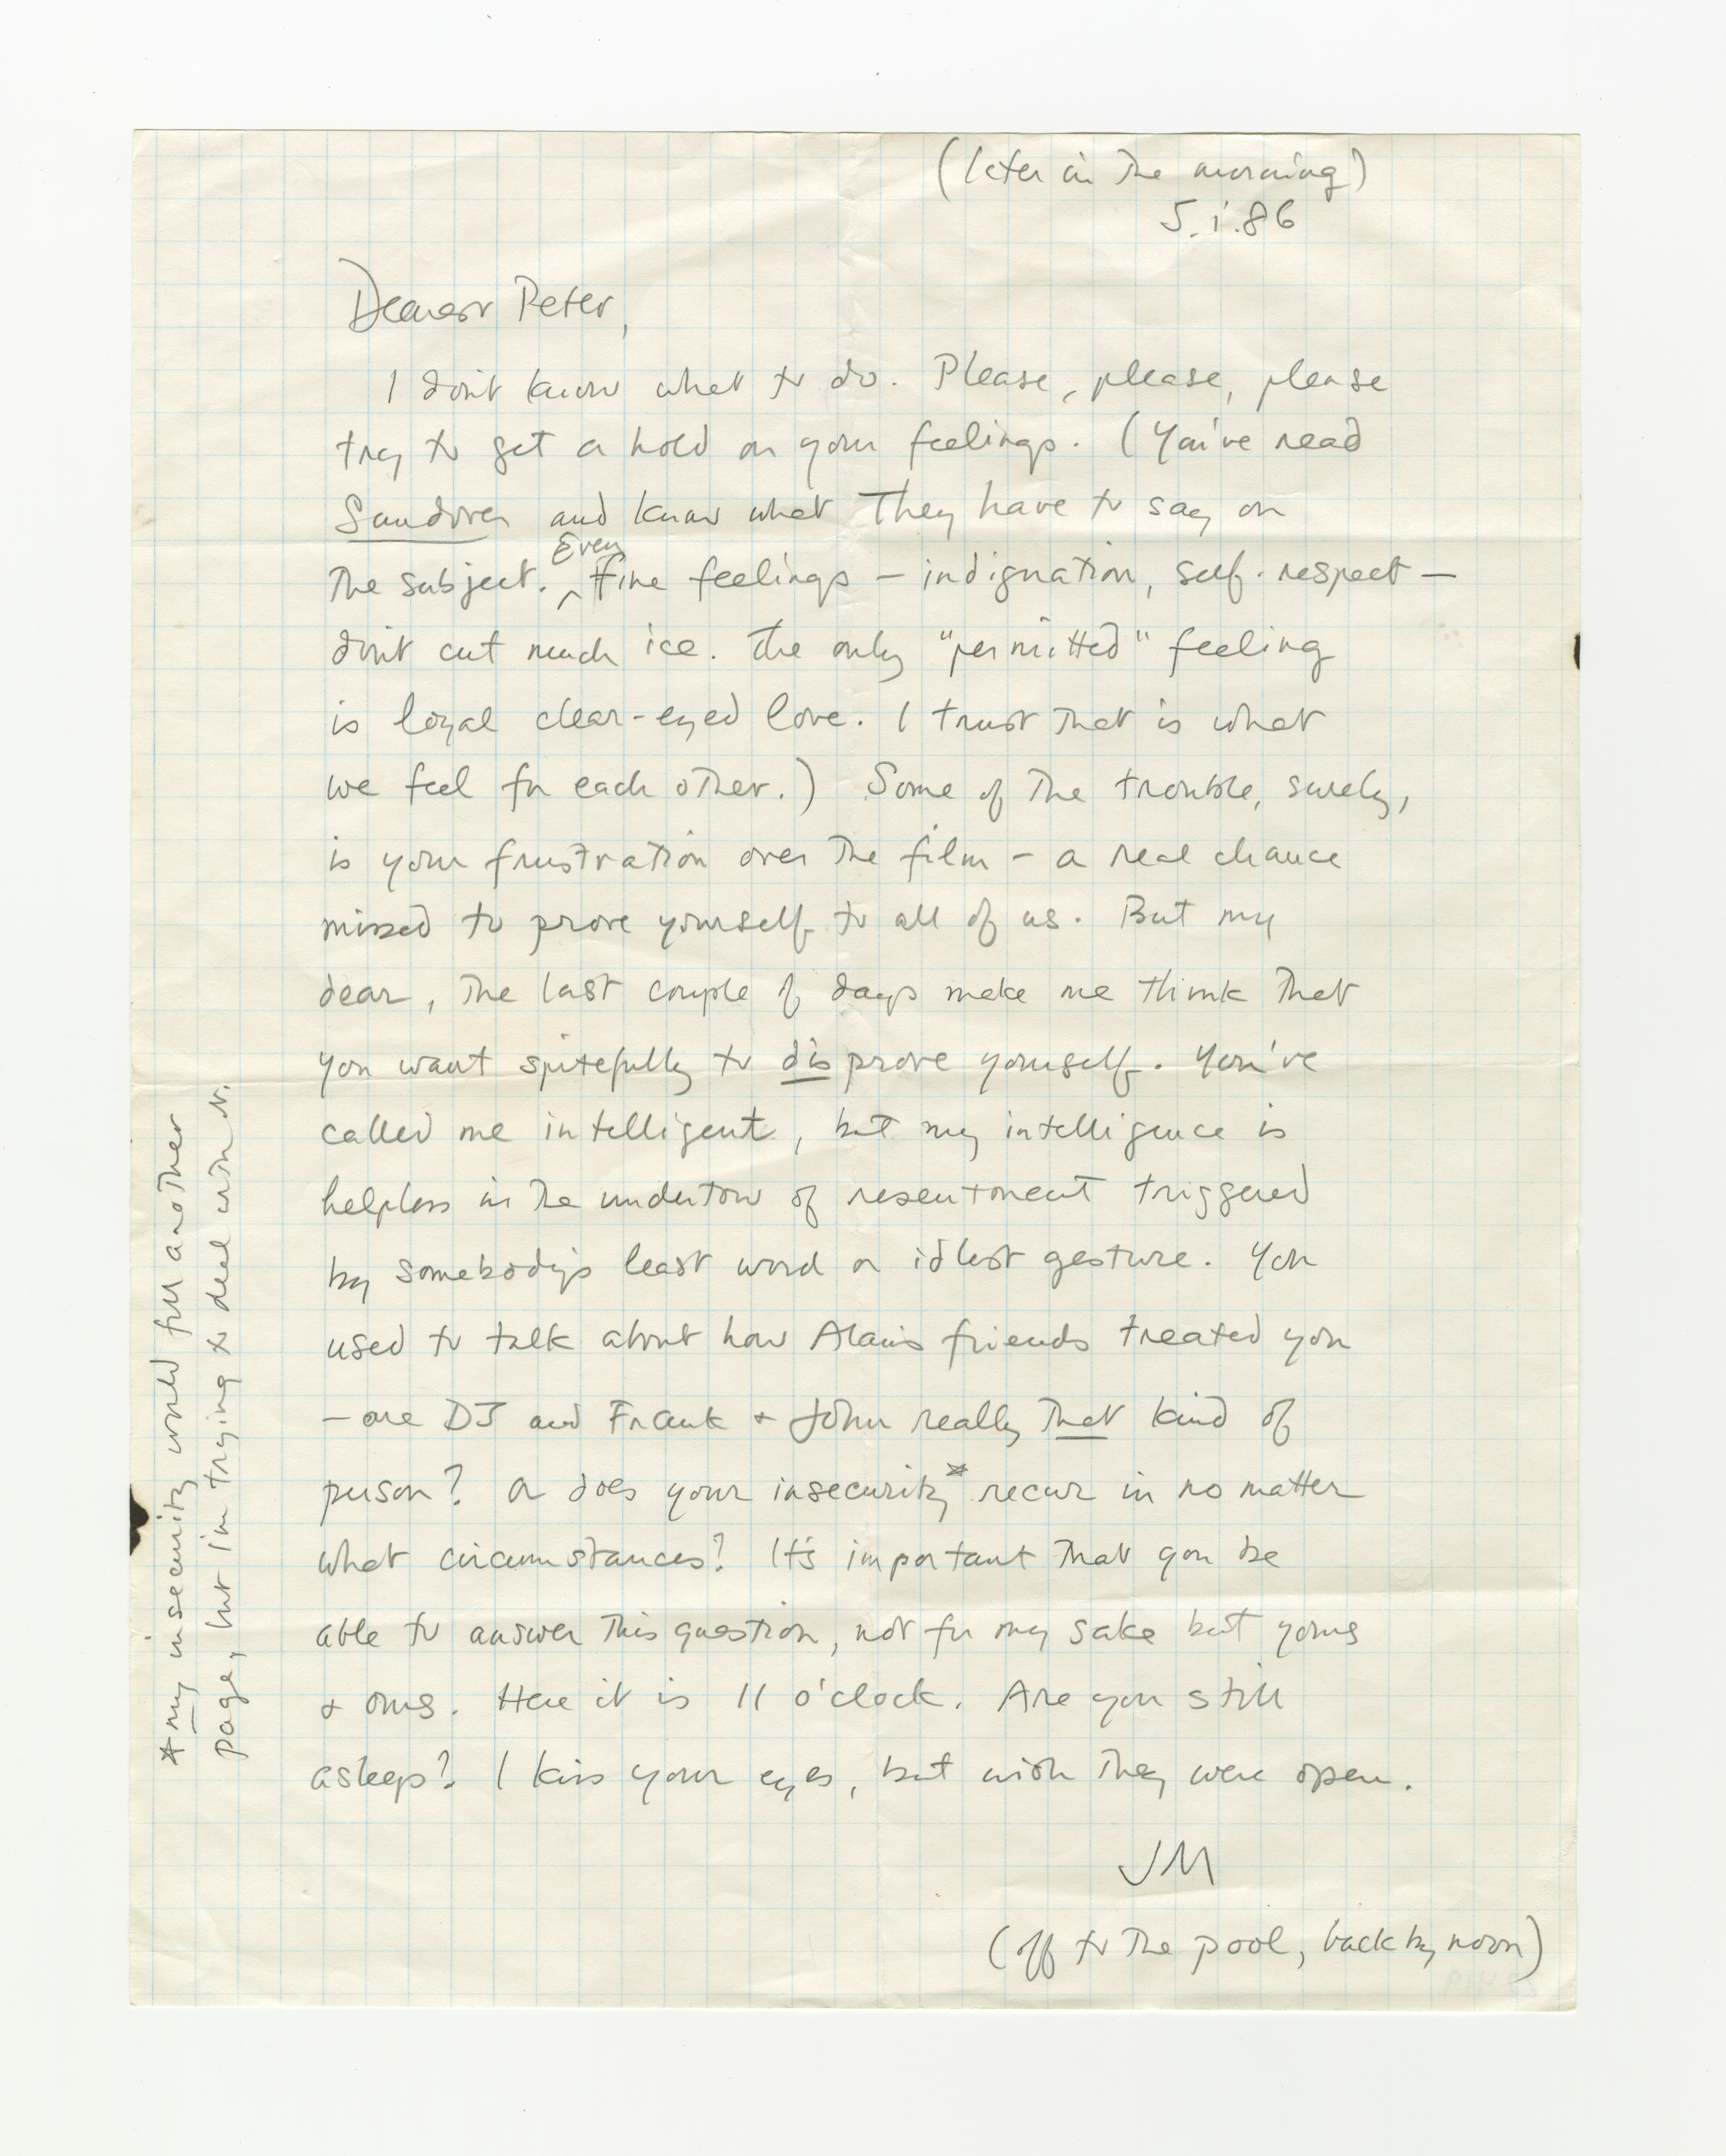 (later in the morning)
5.i.86
Dearest Peter,
I don't know what to do. Please, please, please
try to get a hold on your feelings. (You've read
Sandover and know what They have to say on
Even
the subject. ^ Fine feelings – indignation, self-respect –
don't cut much ice. The only "permitted" feeling
is loyal clear-eyed love. I trust that is what
we feel for each other.) Some of the trouble, surely,
is your frustration over the film – a real chance
missed to prove yourself to all of us. But my
dear, the last couple of days make me think that
you want spitefully to disprove yourself. You've
called me intelligent, but my intelligence is
helpless in the undertow of resentment triggered
by somebody's least word or idlest gesture. You
used to talk about how Alain's friends treated you
– are DJ and Frank + John really that kind of
person? Or does your insecurity* recur in no matter
what circumstances? It's important that you be
able to answer this question, not for my sake but yours
+ ours. Here it is 11 o'clock. Are you still
asleep? I kiss your eyes, but wish they were open.
JM
(off to the pool, back by noon)
* my insecurity would fill another
page, but I'm trying to deal with it.